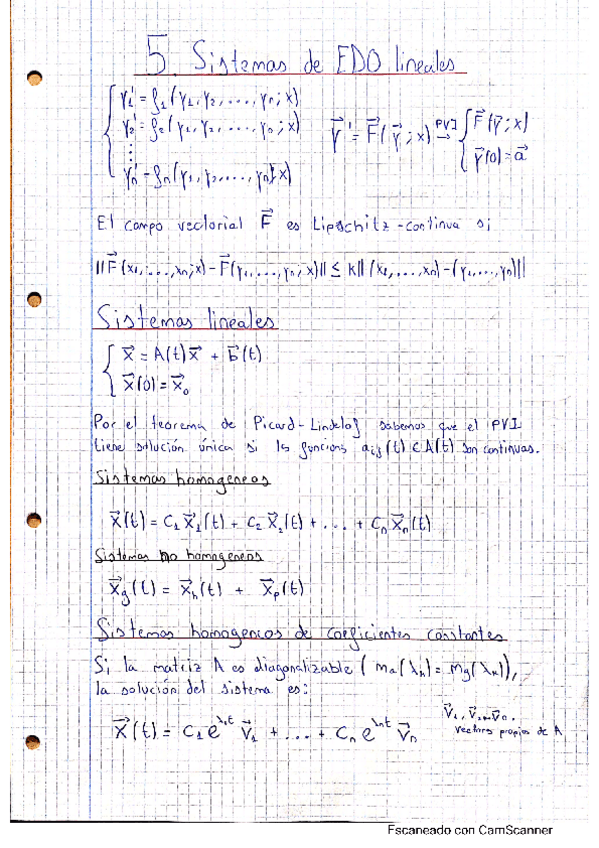 5. Sistemas de EDO lineales
y₁' = f₁(y₁, y₂, ..., yₙ; x)
y₂' = f₂(y₁, y₂, ..., yₙ; x)
⋮
yₙ' = fₙ(y₁, y₂, ..., yₙ; x)
y⃗' = F⃗(y⃗; x) PVI → { F⃗(y⃗; x)
y⃗(0) = a⃗
El campo vectorial F⃗ es Lipschitz-continua si
||F⃗(x₁, ..., xₙ; x) - F⃗(y₁, ..., yₙ; x)|| ≤ K||(x₁, ..., xₙ) - (y₁, ..., yₙ)||
Sistemas lineales
x⃗ = A(t)x⃗ + b⃗(t)
x⃗(0) = x⃗₀
Por el teorema de Picard-Lindelof sabemos que el PVI
tiene solución única si las funcions aᵢⱼ(t) ∈ A(t) son continuas.
Sistemas homogeneos
x⃗(t) = C₁x⃗₁(t) + C₂x⃗₂(t) + ... + Cₙx⃗ₙ(t)
Sistemas no homogeneos
x⃗g(t) = x⃗h(t) + x⃗p(t)
Sistemas homogeneos de coeficientes constantes
Si la matriz A es diagonalizable (ma(λₖ) = mg(λₖ)),
la solución del sistema es:
x⃗(t) = C₁e^λ₁t v⃗₁ + ... + Cₙ e^λₙt v⃗ₙ
vectores propios de A
Escaneado con CamScanner